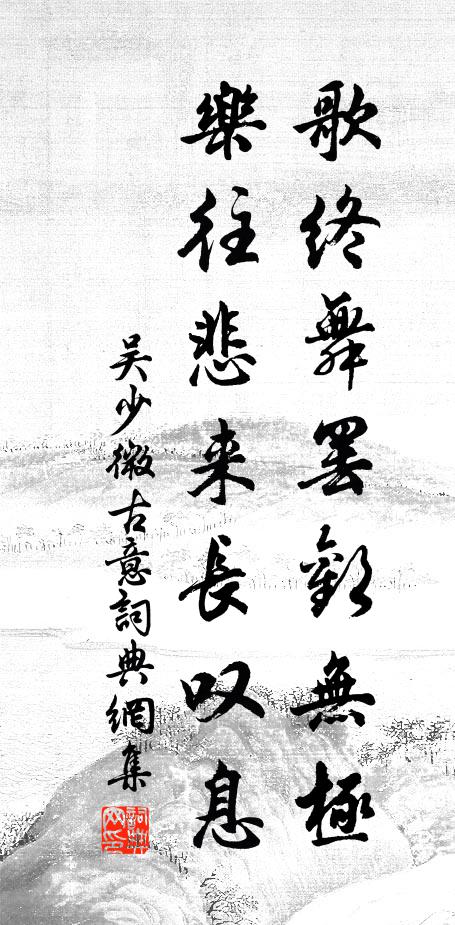 歌終舞罷歡無極
樂往悲来長叹息
吴少微古意詞典網集